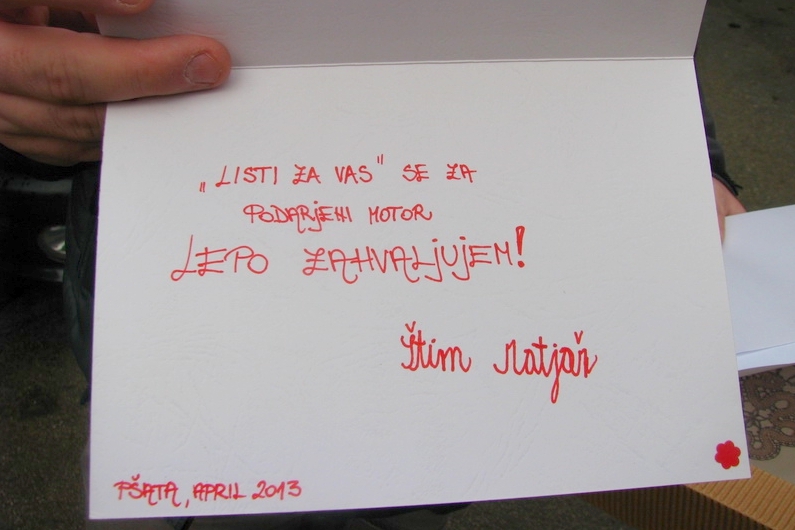 „LISTI ZA VAS" SE ZA
PODARJENI MOTOR
LEPO ZAHVALJUJEM!
Štim Matjaž
PŠATA, APRIL 2013